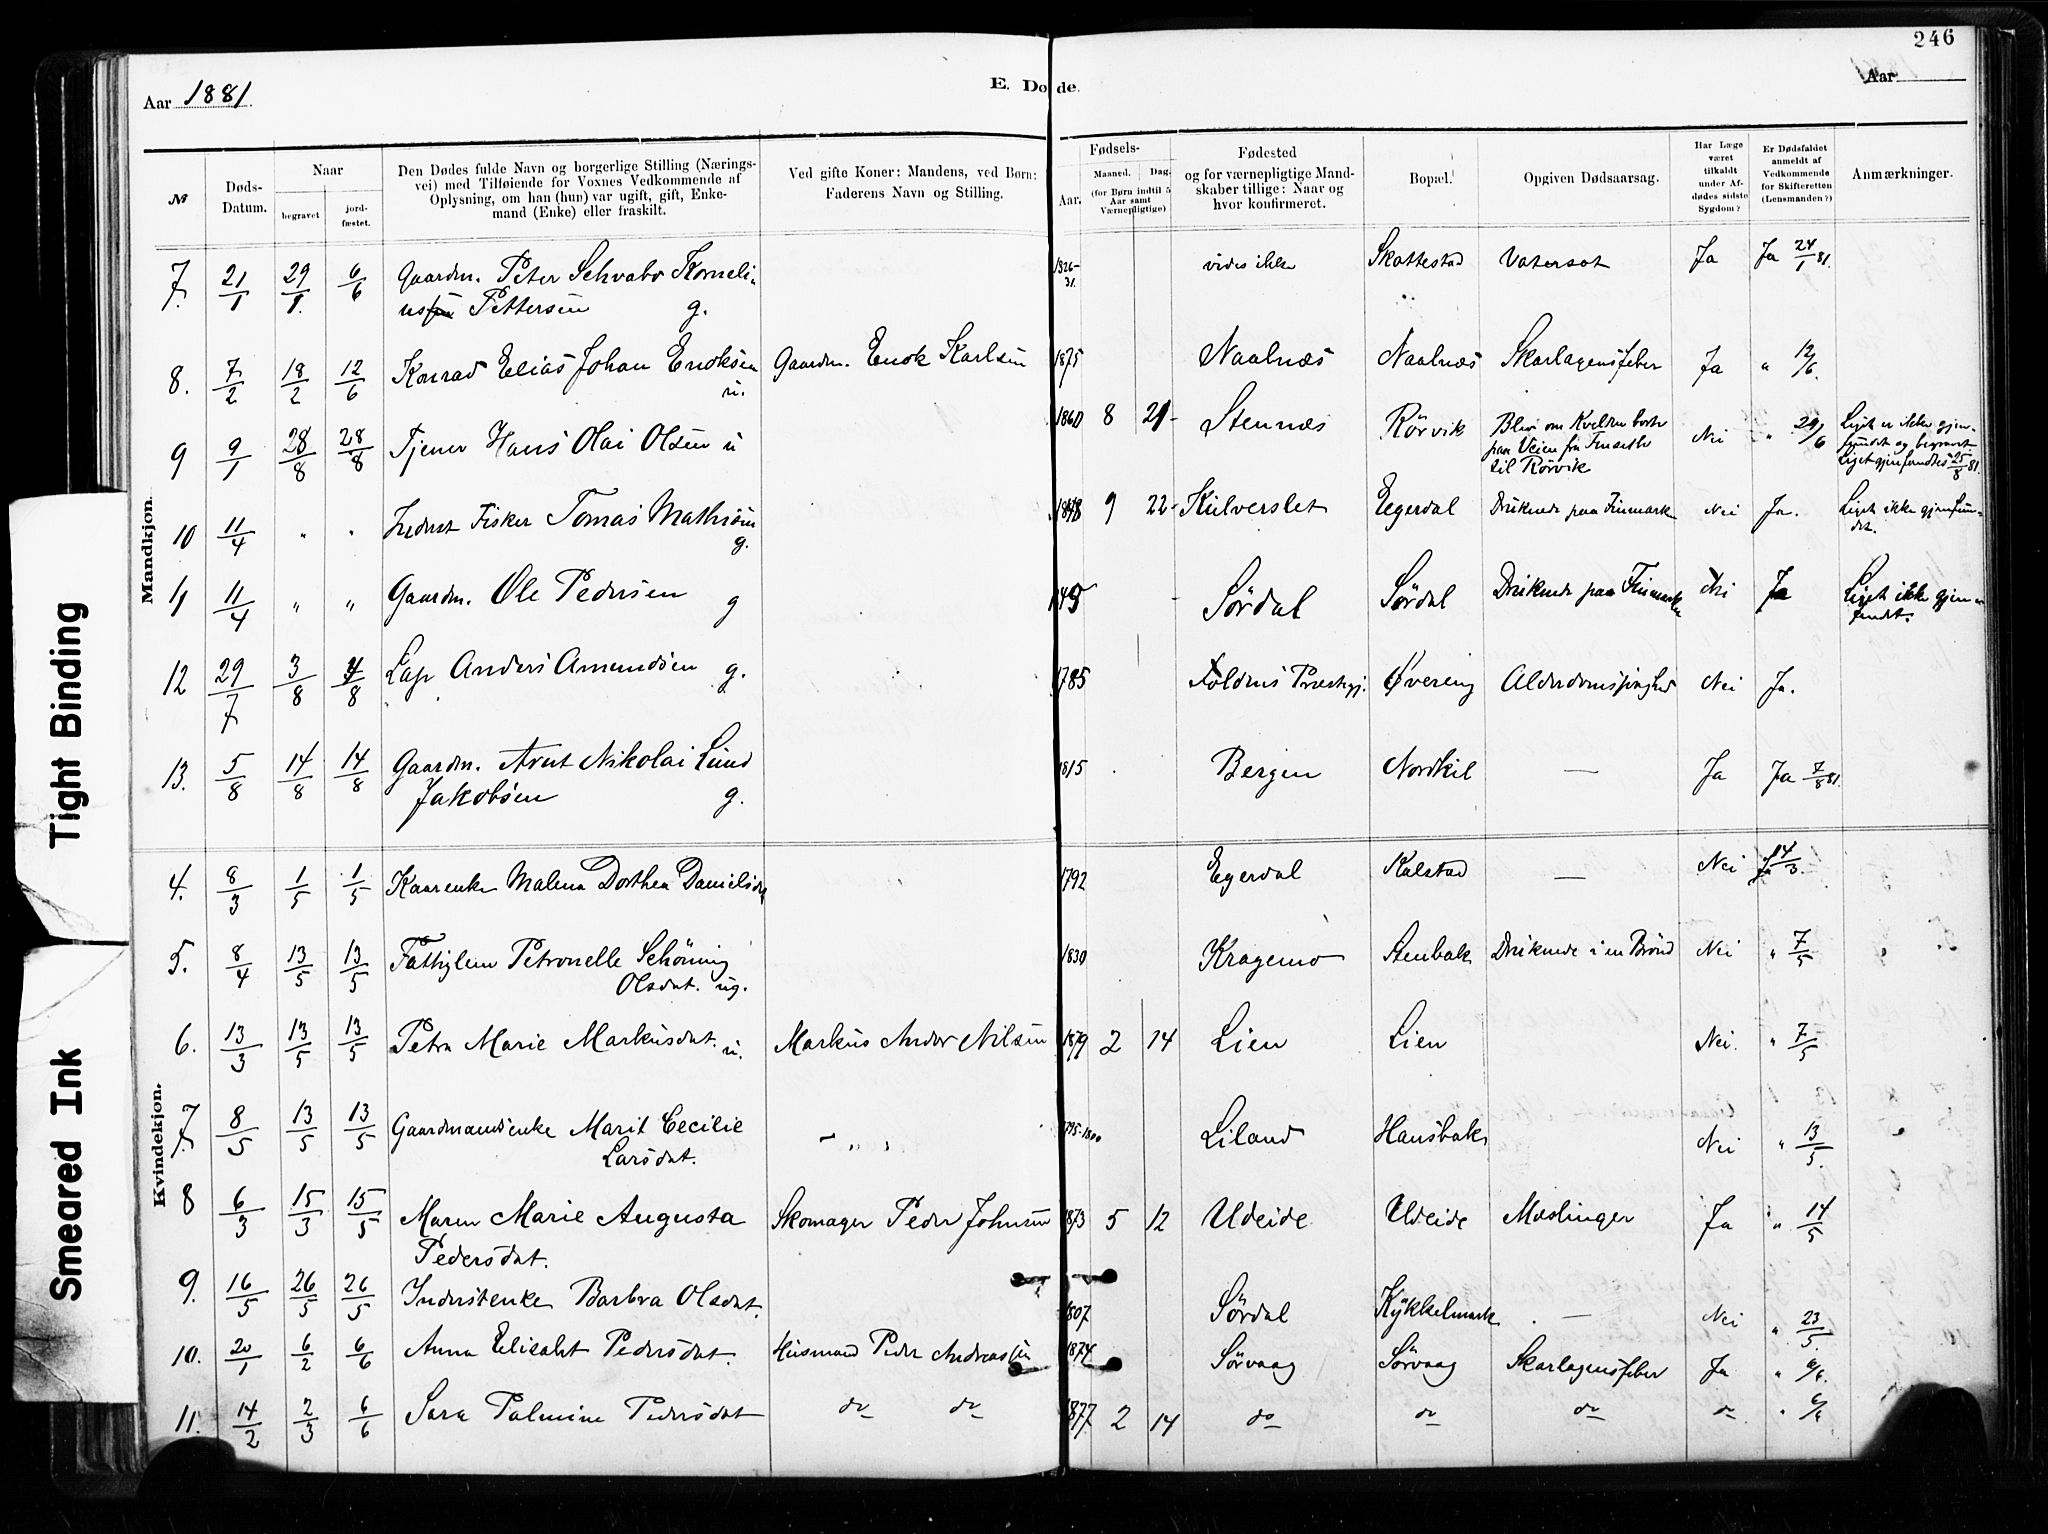 246
Aar 1881.
E. Døde.
Aar
№
Døds-Datum.
Naar
begravet
jord-fæstet.
Den Dødes fulde Navn og borgerlige Stilling (Nærings-
vei) med Tilføiende for Voxnes Vedkommende af
Oplysning, om han (hun) var ugift, gift, Enke-
mand (Enke) eller fraskilt.
Ved gifte Koner: Mandens, ved Børn:
Faderens Navn og Stilling.
Fødsels-
Aar.
Maaned.
Dag.
(for Børn indtil 5
Aar samt
Værnepligtige)
Fødested
og for værnepligtige Mand-
skaber tillige: Naar og
hvor konfirmeret.
Bopæl.
Opgiven Dødsaarsag.
Har Læge
været
tilkaldt
under Af-
dødes sidste
Sygdom?
Er Dødsfaldet
anmeldt af
Vedkommende
for Skifteretten
(Lensmanden?)
Anmærkninger.
Mandkjøn.
7. 21/1 29/1. 6/6 Gaardm. Peter Schvabo Korneli- 1826- vides ikke Skottestad Vatersot Ja Ja 24/1 81.
us Pettersen g. 31.
8. 7/2 18/2 12/6 Konrad Elias Johan Enoksen Gaardm. Enok Karlsen 1875 Naalnæs Naalnæs Skarlagensfeber Ja " 12/6.
u.
9 9/1 28/8 28/8 Tjener Hans Olai Olsen u 1860 8 21- Stennæs Rörvik Blev om Kvelden borte Nei " 29/6 Liget er ikke gjen-
paa Veien fra fundet og begravet
til Rörvik Liget gjenfundtes 25/8 81.
10 11/4 " " Inderst Fisker Tomas Mathisen 1848 9 22- Kulverslet Eegerdal Druknede paa Finmarken Nei Ja. Liget ikke gjenfun-
g. det.
11 11/4 " " Gaardm. Ole Pedersen g Sördal Sördal Druknede paa Finmarken Nei Ja Liget ikke gjen-
fundet.
12 29/7 3/8 4/8 Lap Anders Amundsen g. 1785 Foldens Præstegj. Øvereng Alderdomssvaghed Nei Ja.
13. 5/8 14/8 14/8 Gaardm. Arnt Nikolai Lund 1815 Bergen Nordkil — Ja Ja 7/8 81.
Jakobsen g.
Kvindekjøn.
4. 8/3 1/5 1/5 Kaarenke Malena Dorthea Danielsdat 1792 Egerdal Kalstad — Nei Ja 14/3.
5. 8/4 13/5 13/5 Fattiglem Petronelle Schöning 1830 Kragemo Stenbak Druknede i en Brönd Nei " 7/5
Olsdat. ug.
6. 13/3 13/5 13/5 Petra Marie Markusdat. u. Markus Andor Nilsen 1879 2 14 Lien Lien Nei. " 7/5
7. 8/5 13/5 13/5 Gaardmandsenke Marit Cecilie — " " 1795-1800 Liland Hansbak Nei " 13/5.
Larsdat.
8 6/3 15/3 15/5 Maren Marie Augusta Skomager Peder Johnsen 1873 5 12 Udeide Udeide Meslinger Ja " 14/5
Pedersdat.
9. 16/5 26/5 26/5 Inderstenke Barbra Olsdat. 1807 Sördal Kykkelmark — Nei " 23/5.
10. 20/1 6/2 6/6 Anna Elisabet Pedersdat. Husmand Peder Andreassen 1874 Sörvaag Sörvaag Skarlagensfeber Ja " 6/6.
11. 14/2 2/3 6/6 Sara Palmine Pedersdat do do 1877 2 14 do do do do " 6/6
Tight Binding
Smeared Ink